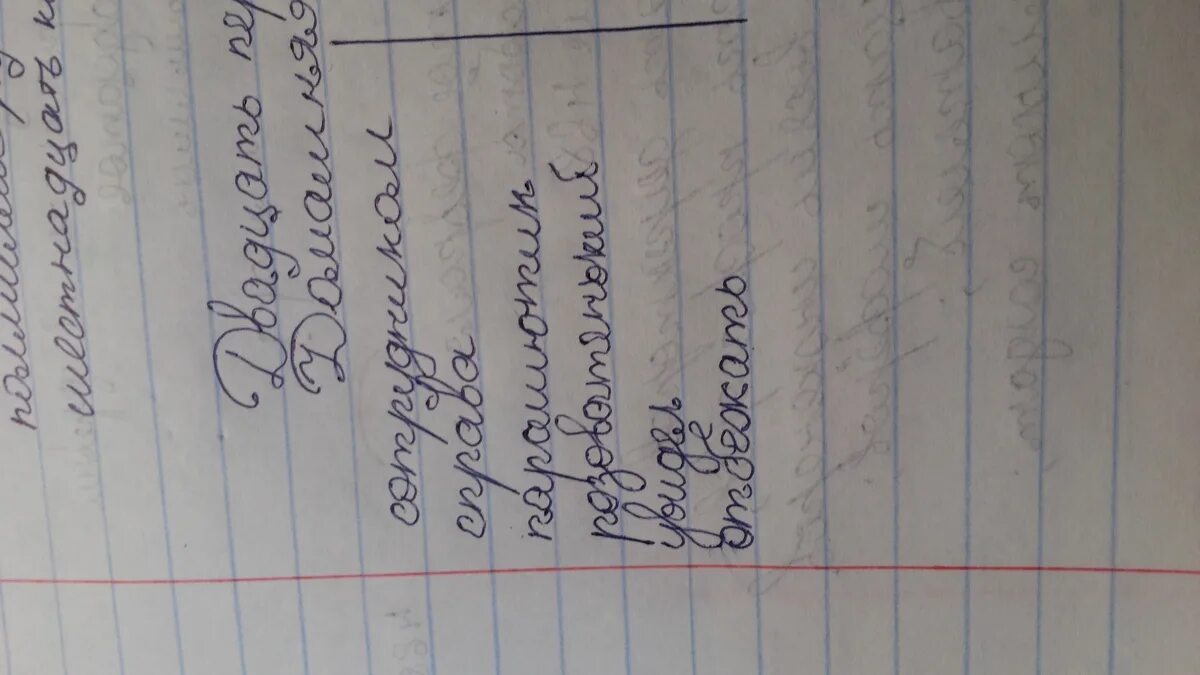 шестнадцать к
Двадцать пер
Домашняя
сотрудником
справа
парашютик
розоватенький
увидел
отбежать